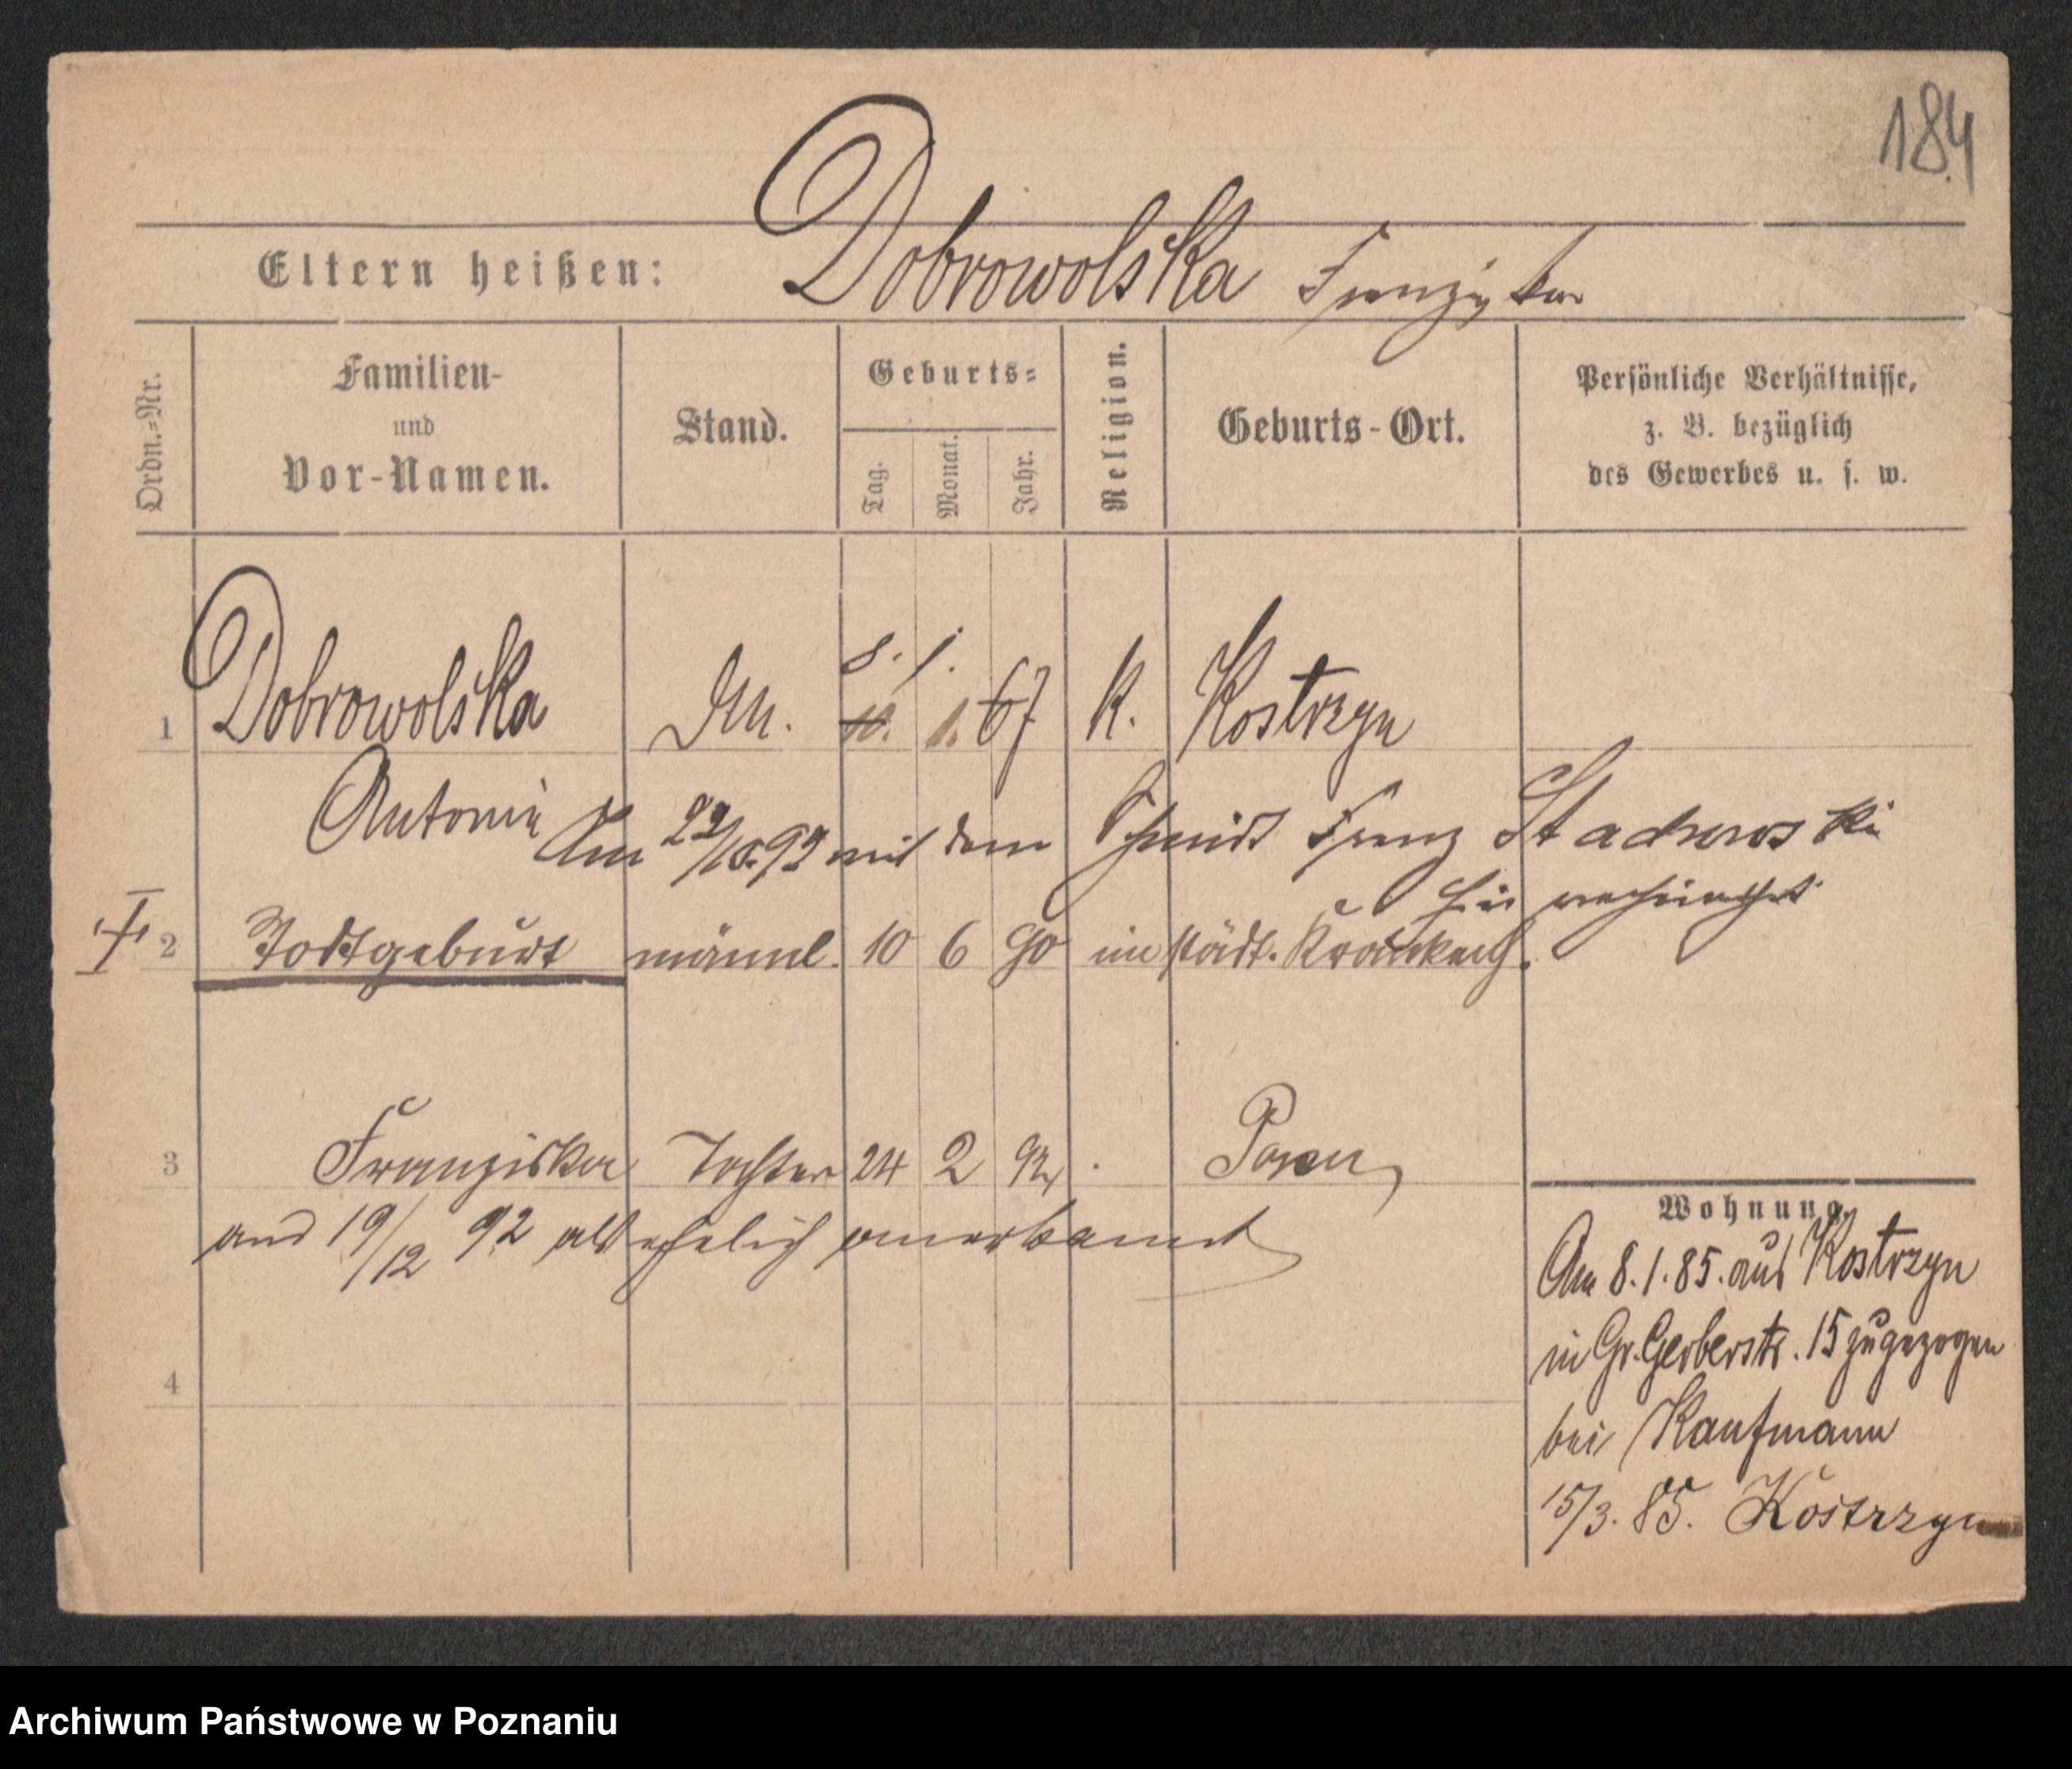 184
Eltern heißen: Dobrowolska Franziska
Ordn.-Nr.
Familien-
und
Vor-Namen.
Stand.
Geburts-
Tag.
Monat.
Jahr.
Religion.
Geburts-Ort.
Persönliche Verhältnisse,
z. B. bezüglich
des Gewerbes u. s. w.
8. 1.
1 Dobrowolska 10. 1. 67 K. Kostrzyn
Antonie
Am 22/10. 92 mit dem Schmidt Franz
hier verheirathet
2 Todtgeburt männl. 10 6 90 im städt. Krankenh.
3 Franziska Tochter 24 2 92 Posen
19/12 92 als ehelich anerkannt
4
Wohnung.
Am 8.1.85. aus Kostrzyn
in Gr. Gerberstr. 15 zugezogen
bei Kaufmann
15/3. 85. Kostrzyn
Archiwum Państwowe w Poznaniu